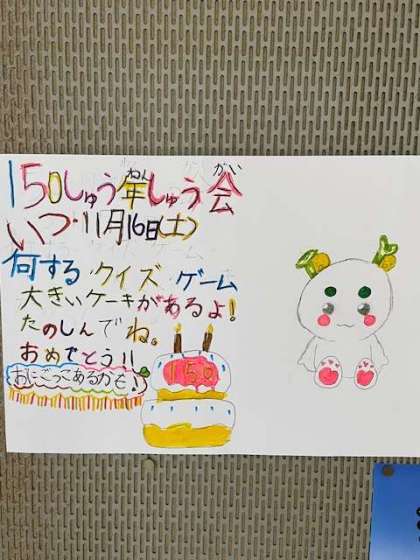 150しゅう年しゅう会
ねん
がい
いつ・11月16日(土)
何する クイズ ゲーム
大きいケーキがあるよ!
たのしんでね。
おめでとう!!
おにごっこあるかも!
150